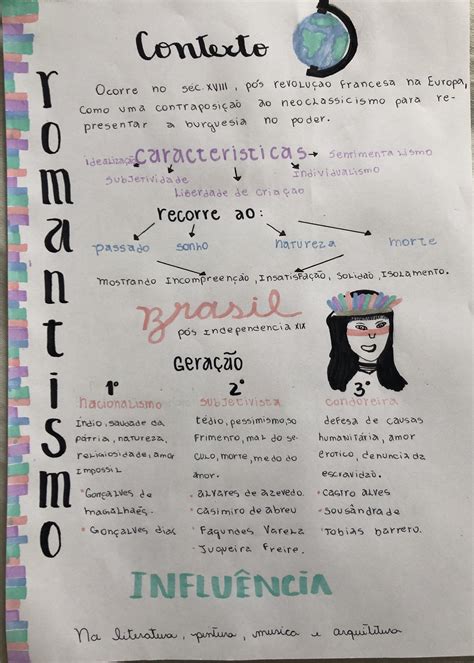 romantismo
Contexto
Ocorre no séc. XVIII, pós revolução francesa na Europa,
como uma contraposição ao neoclassicismo para re-
presentar a burguesia no poder.
idealização características → sentimentalismo
subjetividade individualismo
liberdade de criação
recorre ao:
passado sonho natureza morte
mostrando incompreenção, insatisfação, solidão, isolamento.
Brasil
pós independencia XIX
Geração
1° 2° 3°
nacionalismo subjetivista condoreira
índio, saudade da tédio, pessimismo, so defesa de causas
pátria, natureza, frimento, mal do sé- humanitária, amor
religiosidade, amor culo, morte, medo do erotico, denuncia da
impossil amor. escravidão.
• Gonçalves de • alvares de azevedo. • castro alves
magalhães. • casimiro de abreu • sousândrade
• Gonçalves dias • Fagundes Varela • Tobias barrero.
• Juqueira Freire.
INFLUÊNCIA
Na literatura, pintura, musica e arquititura